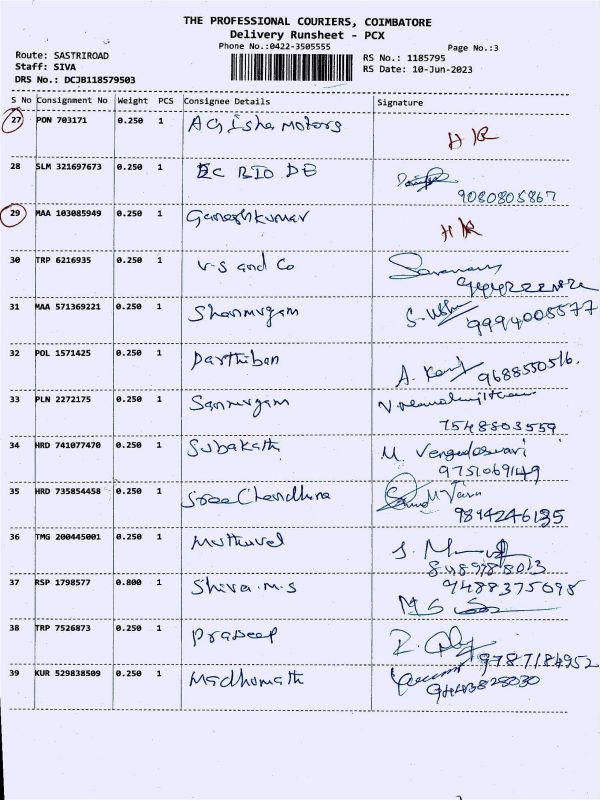 THE PROFESSIONAL COURIERS, COIMBATORE
Delivery Runsheet - PCX
Phone No.:0422-3505555
Page No.:3
Route: SASTRIROAD
Staff: SIVA
DRS No.: DCJB118579503
RS No.: 1185795
RS Date: 10-Jun-2023
S No Consignment No Weight PCS Consignee Details Signature
27 PON 703171 0.250 1 AG Isha Motors H R
28 SLM 321697673 0.250 1 RIO DE
9080805867
29 MAA 103085949 0.250 1 Ganeshkumar H R
30 TRP 6216935 0.250 1 V.S and Co Saravanan
31 MAA 571369221 0.250 1 Shanmugam S. Usha
9994008577
32 POL 1571425 0.250 1 Parthiban A.
9688550516.
33 PLN 2272175 0.250 1 Sanmugam
7548803559
34 HRD 741077470 0.250 1 Subakath M. Vengadeswari
9751069149
35 HRD 735854458 0.250 1 Sree Chandhra
9894246135
36 TMG 200445001 0.250 1 Muthuvel S.
8489788013
37 RSP 1798577 0.800 1 Shiva.M.S 9488375698
M S
38 TRP 7526873 0.250 1 Pradeep R.
9787184952
39 KUR 529838509 0.250 1 Madhumath